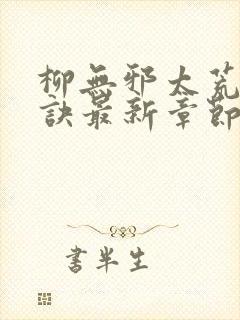 柳無邪太荒
訣最新章節
書半生